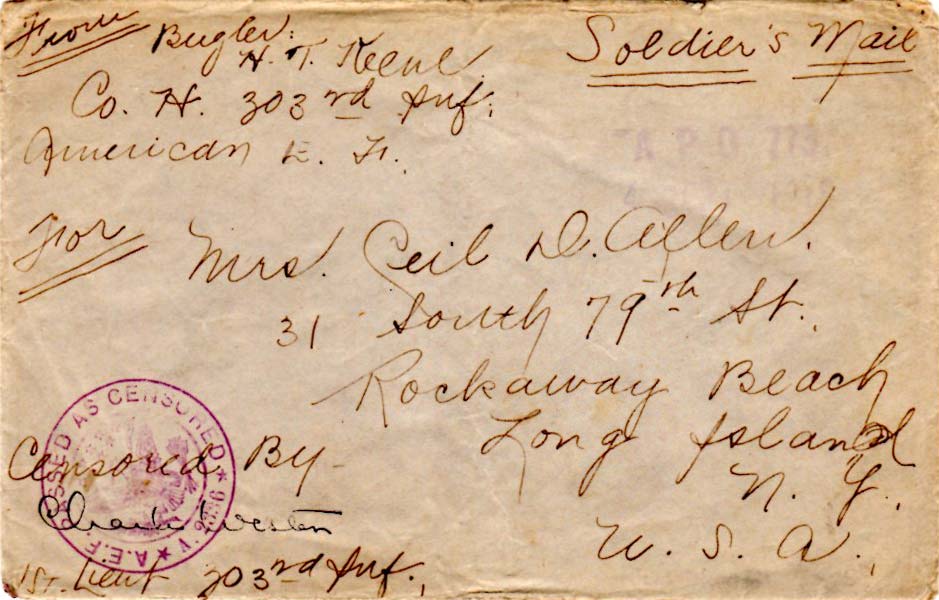 From Bugler. Soldier's Mail
H. T. Keene
Co. H. 303rd Inf.
American E. F.
A.P.O. 773
For
Mrs. Ceil D. Allen.
31 South 79th St.
Rockaway Beach
Long Island
N. Y.
U. S. A.
PASSED AS CENSORED
A.E.F.
Censored By
Weston
1st Lieut 303rd Inf.